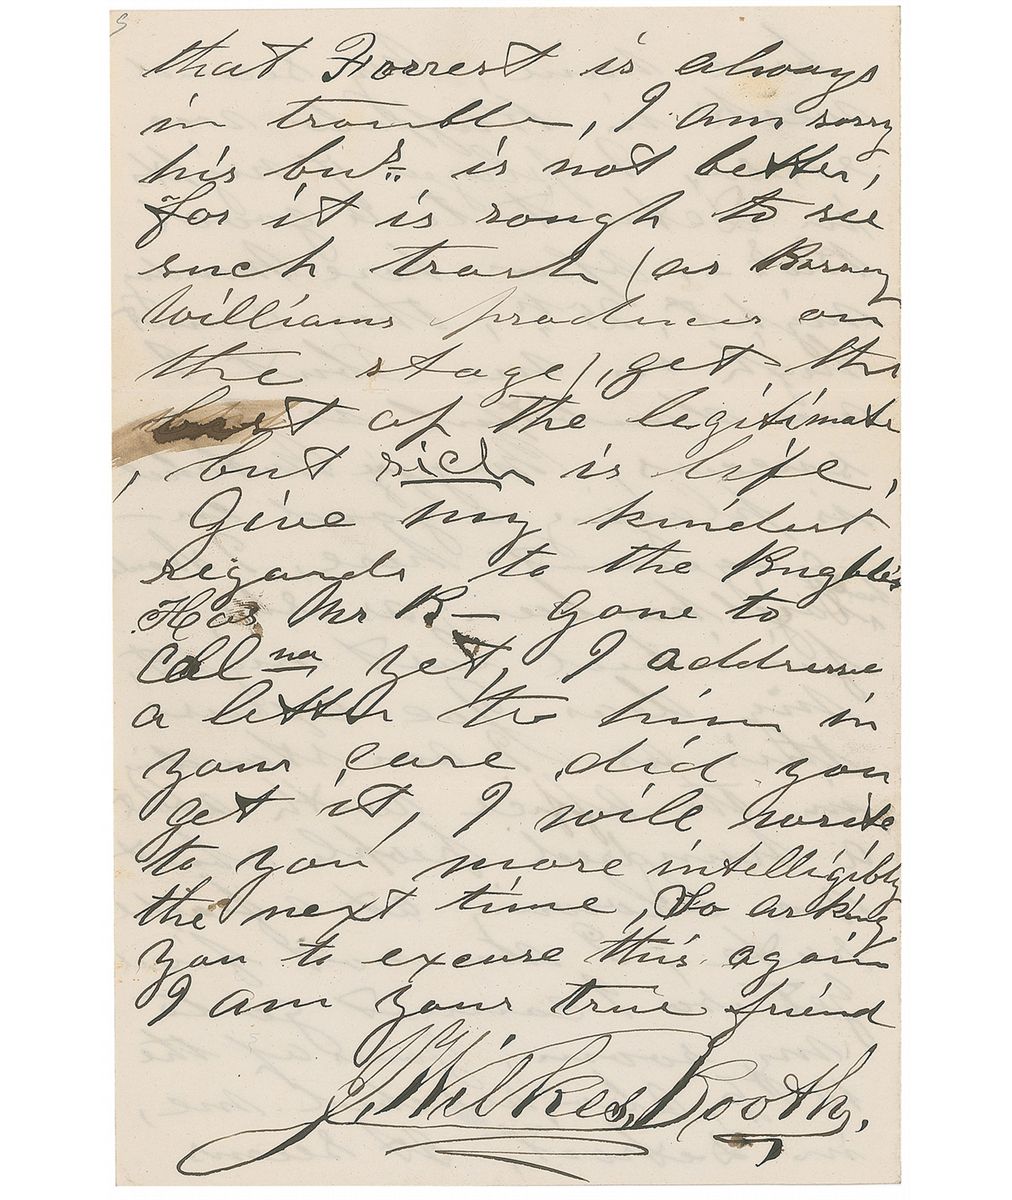 that Forrest is always
in trouble, I am sorry
his bus. is not better,
for it is rough to see
such trash (as Barney
Williams produces on
the stage), get the
best of the legitimate
, but sich is life,
Give my kindest
regards to the
Has Mr B— Gone to
Cal na yet, I address
a letter to him in
your care, did you
get it, I will write
to you more intelligibly
the next time, So asking
you to excuse this again
I am your true friend
J. Wilkes Booth.